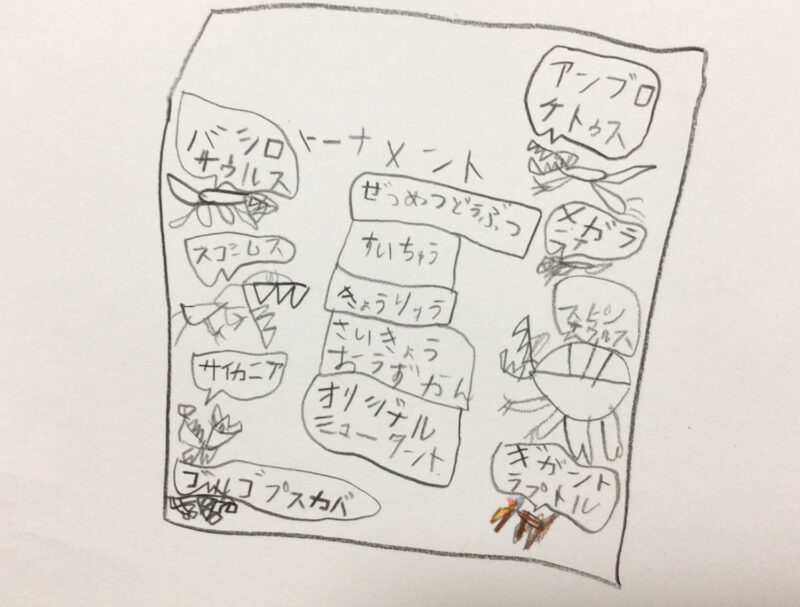 トーナメント
バシロ
サウルス
ネコシムス
サイカニア
ゴルゴプスカバ
ぜつめつどうぶつ
すいちゅう
きょうりゅう
さいきょう
おうずかん
オリジナル
ミュータント
アンブロ
ケトゥス
メガラ
ニア
スピノ
サウルス
ギガント
ラプトル